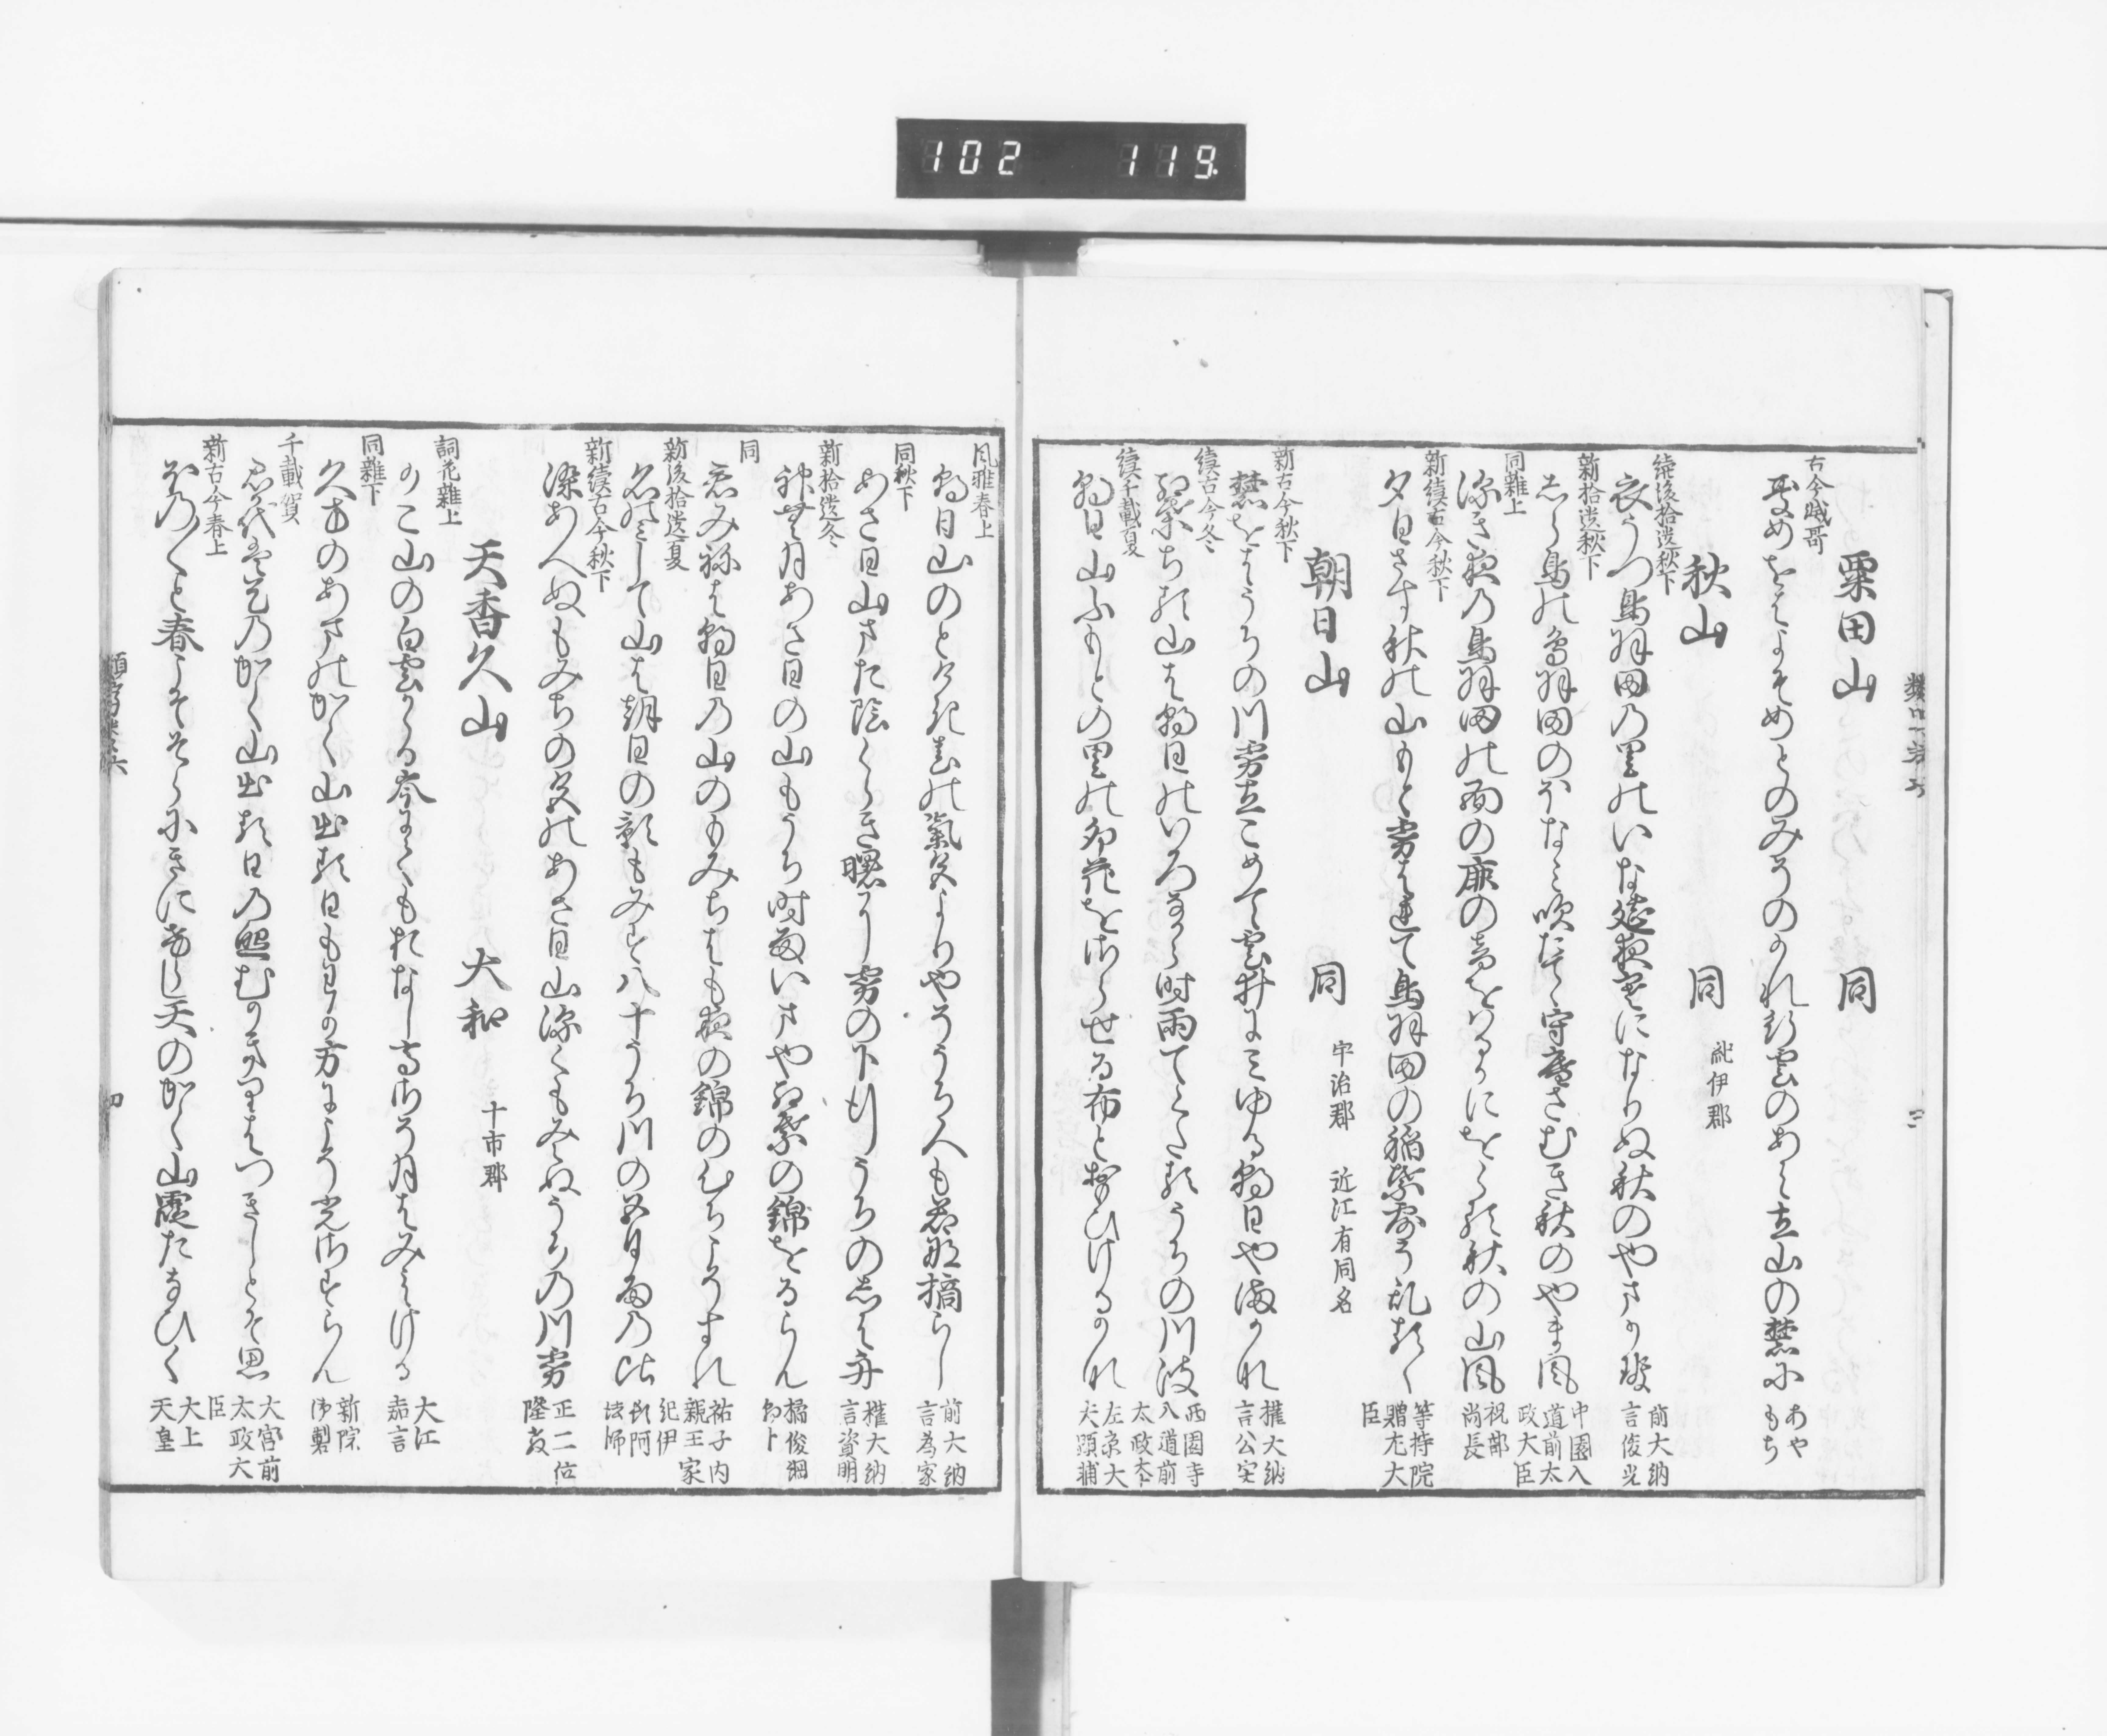 102 119.
粟田山 同
古今賊哥
そめとのみうのかれ行雲のあはれ立山の麓に あやもち
秋山 同 紀伊郡
続後拾遺秋下
衣うつ鳥羽田の里のいな莚夜寒になりぬ秋のやまかせ 前大納言俊光
新拾遺秋下
しら鳥の鳥羽田のほなみ吹たてゝ守庵さむき秋のやま風 中園入道前太政大臣
同雜上
深き夜の鳥羽田の面の鹿の音をはるかにをくる秋の山風 祝部尚長
新續古今秋下
夕日さす秋の山もと霧はれて鳥羽田の稲葉露そ乱るゝ 等持院贈左大臣
朝日山 同 宇治郡 近江有同名
新古今秋下
麓をはうちの川霧立こめて雲井にみゆる朝日やまかな 權大納言公実
續古今冬
紅葉ちる山は朝日のいろなから時雨てくたるうちの川波 西園寺入道前太政大臣
續千載夏
朝日山ふもとの里の卯花をさらせる布とおもひけるかな 左京大夫顕輔
風雅春上
朝日山のとけき春の氣色よりやそうち人も若菜摘らし 前大納言為家
同秋下
あさ日山また陰くらき曙に霧の下行うちのしは舟 權大納言資明
新拾遺冬
神無月あさ日の山もうち時雨いまや紅葉の錦をるらん 橘俊綱朝卜
同
君みねは朝日の山のもみちはも夜の錦のこゝちこそすれ 祐子内親王家紀伊
新後拾遺夏
名のみして山は朝日の影もみす八十うち川の五月雨の比 頓阿法師
新續古今秋下
染あへぬもみちの色のあさ日山深くもみえぬうちの川霧 正二位隆教
天香久山 大和 十市郡
詞花雜上
かこ山の白雲かゝる峯にてもおなし高さそ月はみえける 大江嘉言
同雜下
久方のあまのかく山出る日もわか方にこそ光さすらん 新院御製
千載賀
君か代は天のかく山出る日の照むかきりはつきしとそ思 大宮前太政大臣
新古今春上
ほの〱と春こそそらにきにけらし天のかく山霞たなひく 大上天皇
四